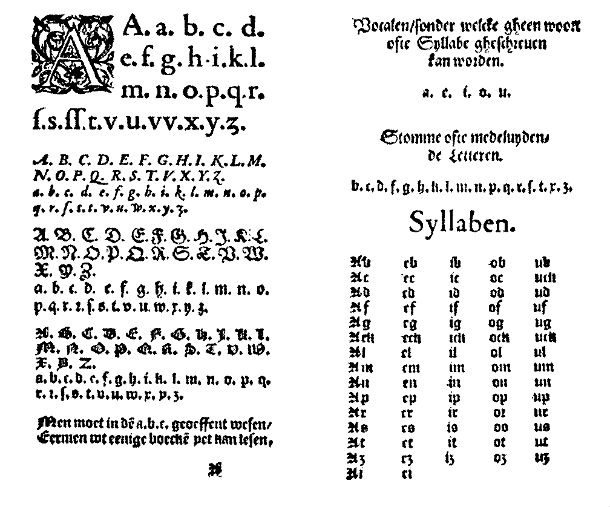 A A. a. b. c. d.
e. f. g. h. i. k. l.
m. n. o. p. q. r.
ſ. s. ſſ. t. v. u. vv. x. y. ʒ.
A. B. C. D. E. F. G. H. I. K. L. M.
N. O. P. Q. R. S. T. V. X. Y. Z.
a. b. c. d. e. f. g. h. i. k. l. m. n. o. p.
q. r. ſ. s. t. v. u. w. x. y. z.
A. B. C. D. E. F. G. H. J. K. L.
M. N. O. P. Q. R. S. T. V. W.
X. Y. Z.
a. b. c. d. e. f. g. h. i. k. l. m. n. o.
p. q. r. ꝛ. ſ. s. t. v. u. w. x. y. z.
A. B. C. D. E. F. G. H. I. K. L.
M. N. O. P. Q. R. S. T. V. W.
X. Y. Z.
a. b. c. d. e. f. g. h. i. k. l. m. n. o. p. q.
r. ꝛ. ſ. s. t. v. u. w. x. y. z.
Men moet in dē a.b.c. geoeffent weſen/
Eermen tot eenige boeckē yet kan leſen,
Vocalen/ſonder welcke gheen woort
ofte Syllabe gheſchreven
kan worden.
a. e. i. o. u.
Stomme ofte medeluyden/
de Letteren.
b. c. d. f. g. h. k. l. m. n. p. q. r. ſ. t. x. z.
Syllaben.
Ab eb ib ob ub
Ac ec ic oc uck
Ad ed id od ud
Af ef if of uf
Ag eg ig og ug
Ack eck ick ock uck
Al el il ol ul
Am em im om um
An en in on un
Ap ep ip op up
Ar er ir or ur
As es is os us
At et it ot ut
Az ez iz oz uz
Ai ei